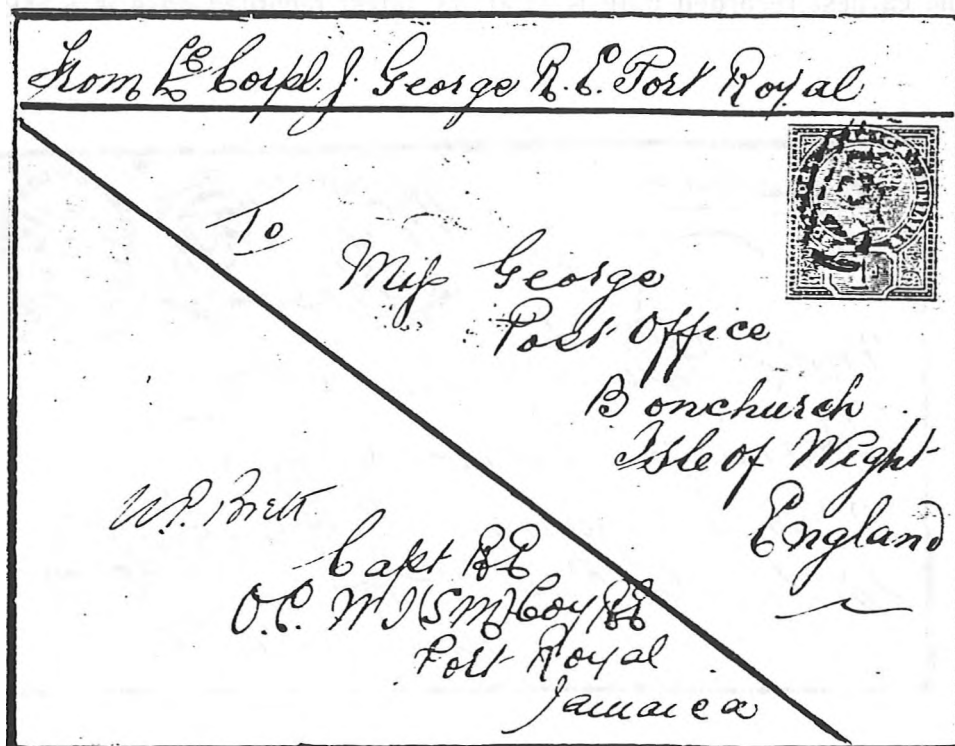 From Lce Corpl. J. George R.E. Port Royal
To
Miss George
Post Office
Bonchurch
Isle of Wight
England
W.P. Brett
Capt RE
O.C. W I (S M) Coy RE
Port Royal
Jamaica